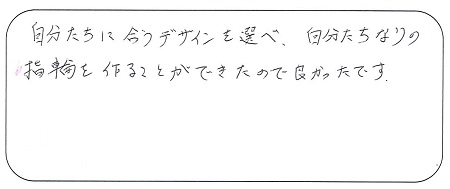 自分たちに合うデザインを選べ、自分たちなりの
指輪を作ることができたので良かったです.